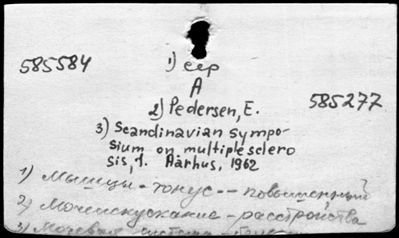 585584
1) сер
A
2) Pedersen, E.
585277
3) Scandinavian sympo-
sium on multiple sclero
sis, 1. Aarhus, 1962
1) Мышцы - тонус -- повышенный
2) Мочеиспускание - расстройства
3) Мочевая система -